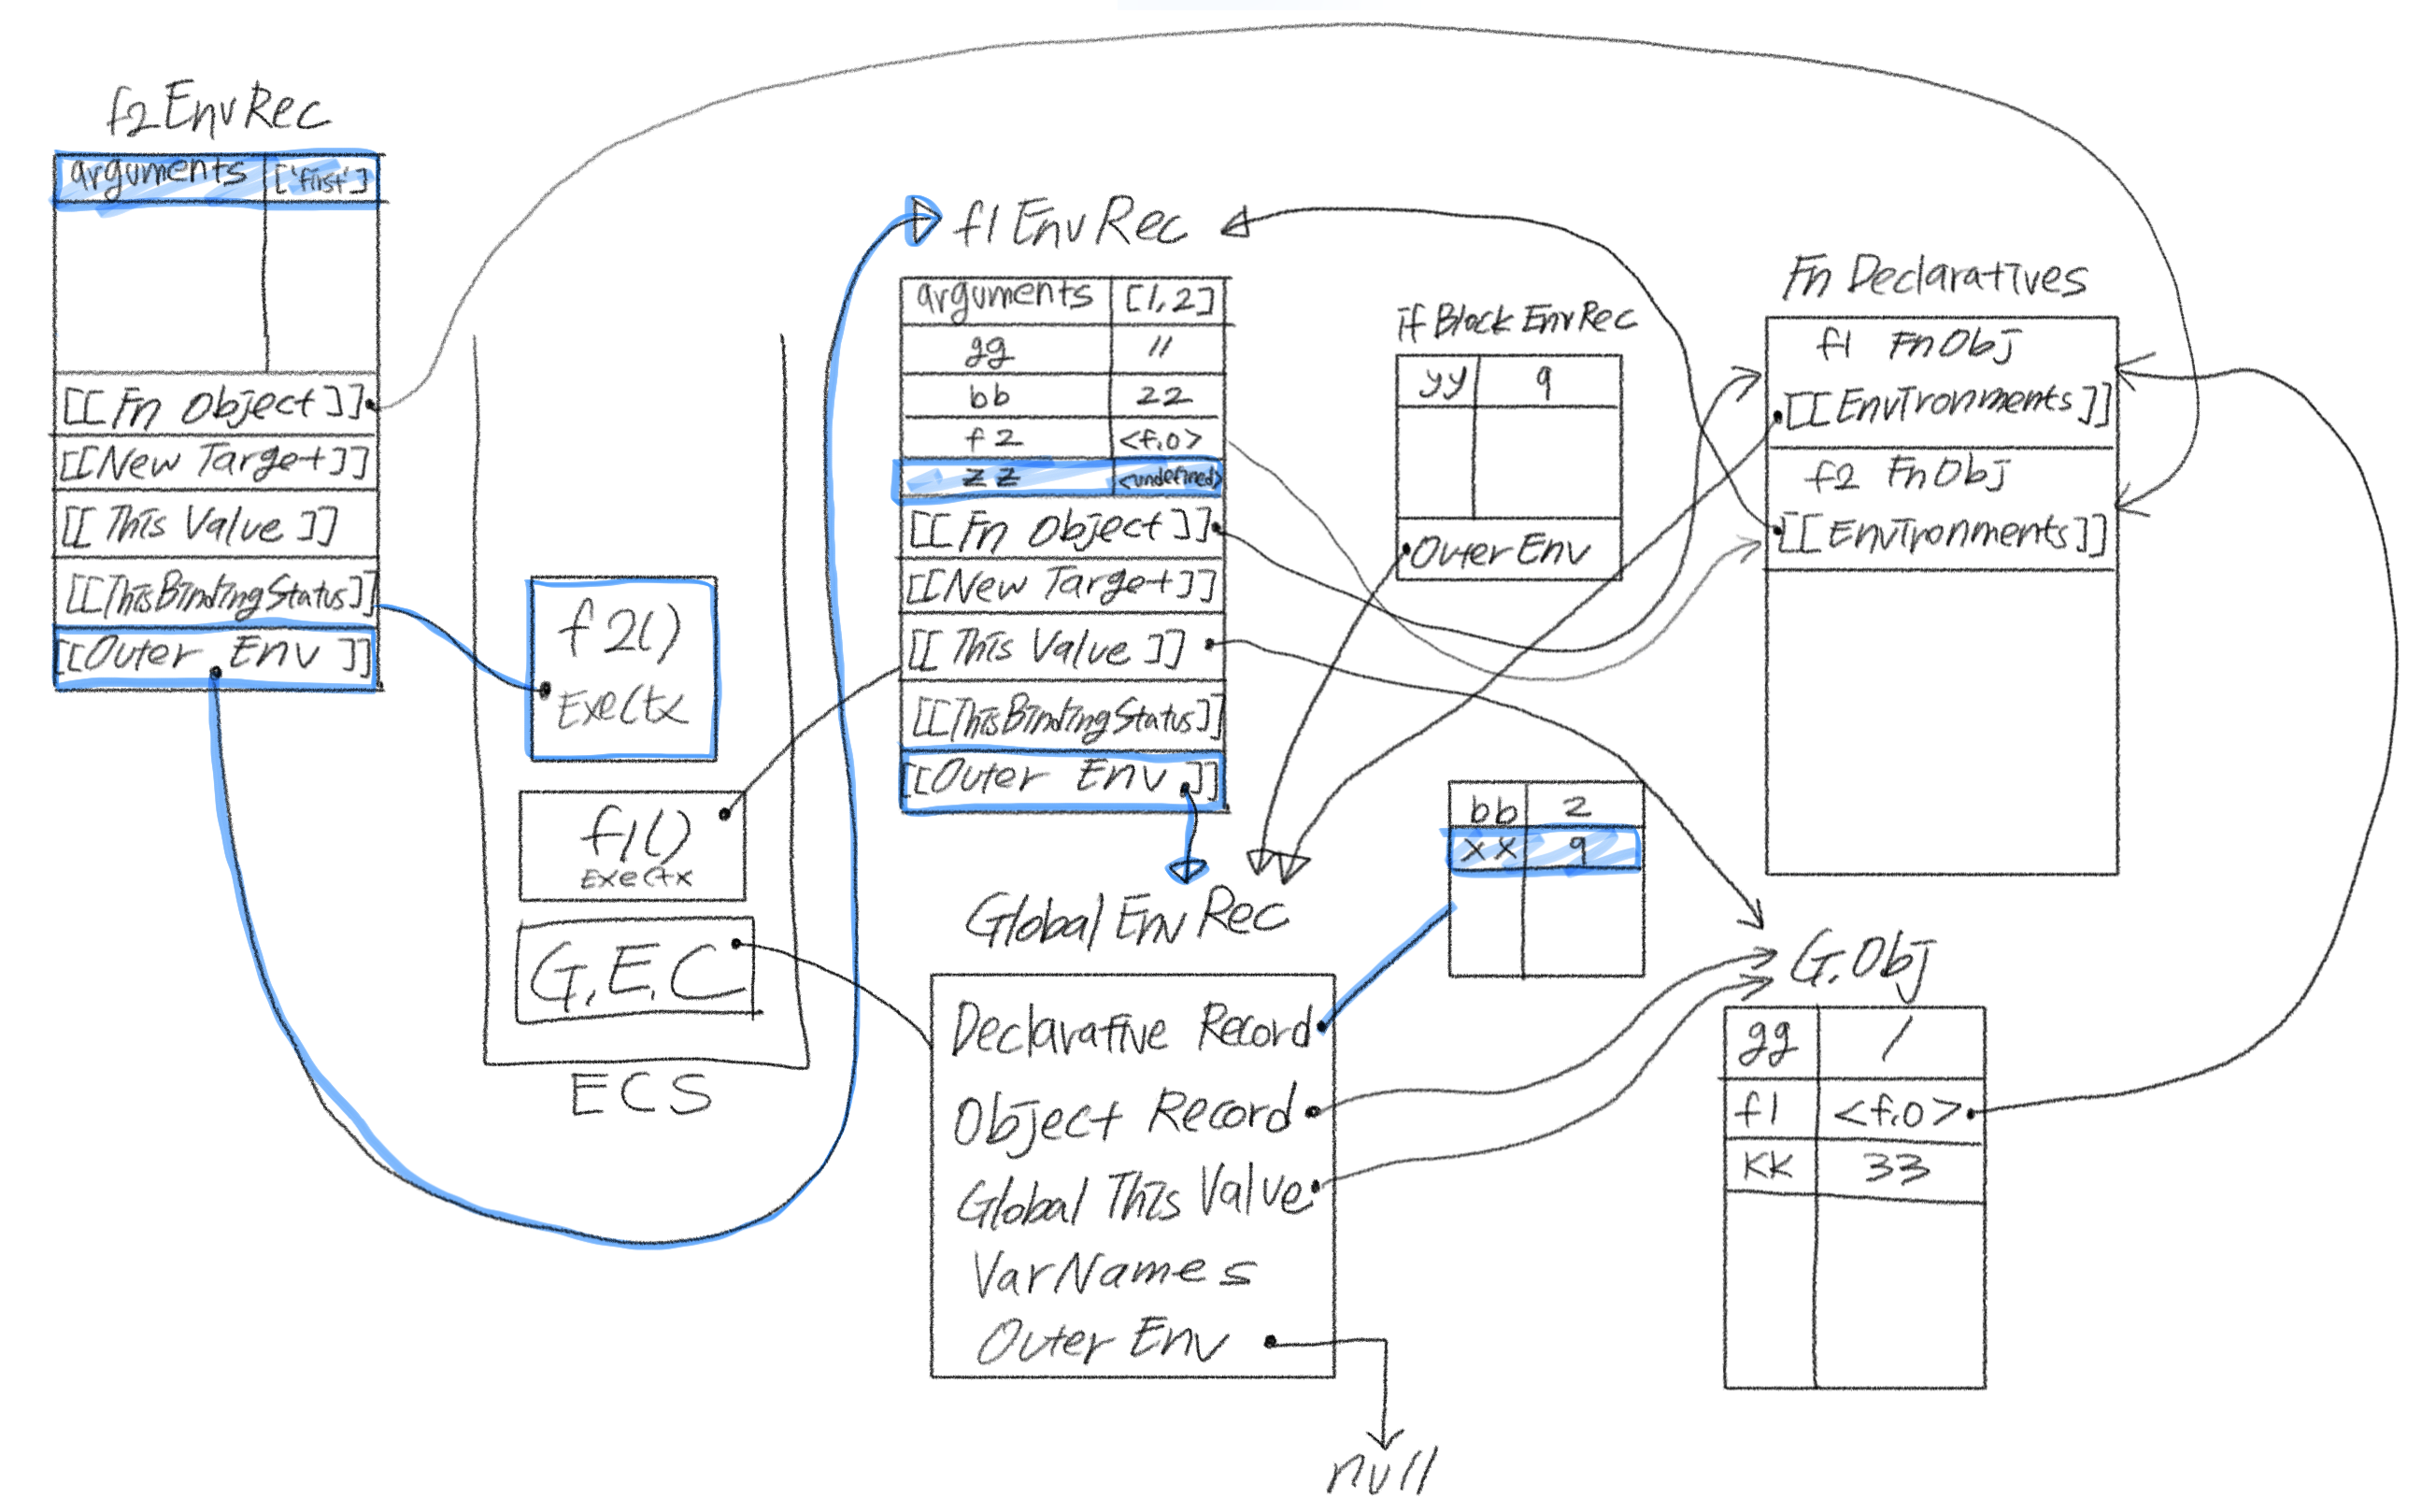 f2 EnvRec
arguments ['first']
[[Fn Object]]
[[New Target]]
[[This Value]]
[[ThisBindingStatus]]
[[Outer Env]]
f2()
ExeCtx
f1()
ExeCtx
G.E.C
ECS
f1 EnvRec
arguments [1,2]
gg 11
bb 22
f2 <f.o>
zz <undefined>
[[Fn Object]]
[[New Target]]
[[This Value]]
[[ThisBindingStatus]]
[[Outer Env]]
if Block EnvRec
yy 9
Outer Env
Fn Declaratives
f1 FnObj
[[Environments]]
f2 FnObj
[[Environments]]
bb 2
xx 9
Global Env Rec
Declarative Record
Object Record
Global This Value
VarNames
Outer Env
null
G.Obj
gg 1
f1 <f.o>
KK 33